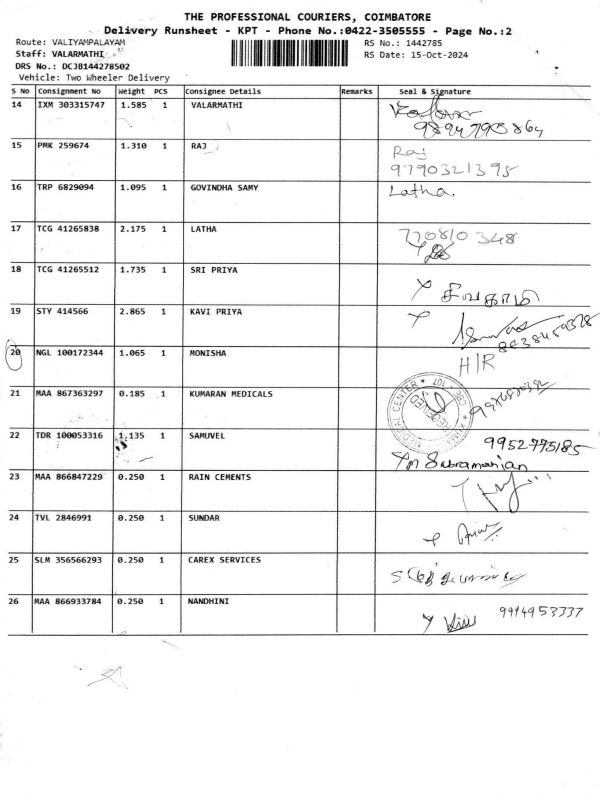 THE PROFESSIONAL COURIERS, COIMBATORE
Delivery Runsheet - KPT - Phone No.:0422-3505555 - Page No.:2
Route: VALIYAMPALAYAM
RS No.: 1442785
Staff: VALARMATHI
RS Date: 15-Oct-2024
DRS No.: DCJB144278502
Vehicle: Two Wheeler Delivery
S No Consignment No Weight PCS Consignee Details Remarks Seal & Signature
14 IXM 303315747 1.585 1 VALARMATHI
15 PMK 259674 1.310 1 RAJ Raj
9790321395
16 TRP 6829094 1.095 1 GOVINDHA SAMY Latha.
17 TCG 41265838 2.175 1 LATHA 770810348
18 TCG 41265512 1.735 1 SRI PRIYA சிவகாமி
19 STY 414566 2.865 1 KAVI PRIYA
20 NGL 100172344 1.065 1 MONISHA H/R
21 MAA 867363297 0.185 1 KUMARAN MEDICALS
MEDICAL CENTER
RECEIVED
22 TDR 100053316 1.135 1 SAMUVEL 9952775185
M Subramanian
23 MAA 866847229 0.250 1 RAIN CEMENTS
24 TVL 2846991 0.250 1 SUNDAR
25 SLM 356566293 0.250 1 CAREX SERVICES
26 MAA 866933784 0.250 1 NANDHINI 9994953337